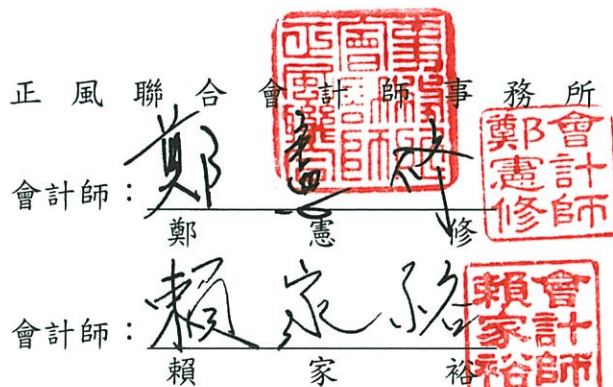 正風聯合會計師事務所
正風聯合會計師事務所
會計師：鄭憲修
鄭憲修
會計師鄭憲修
會計師：賴家裕
賴家裕
會計師賴家裕